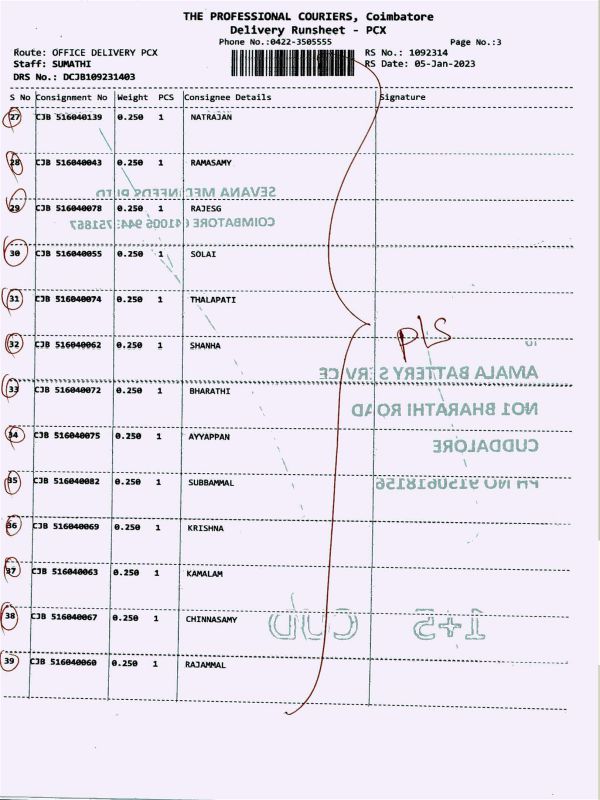 THE PROFESSIONAL COURIERS, Coimbatore
Delivery Runsheet - PCX
Phone No.:0422-3505555 Page No.:3
Route: OFFICE DELIVERY PCX RS No.: 1092314
Staff: SUMATHI RS Date: 05-Jan-2023
DRS No.: DCJB109231403
S No Consignment No Weight PCS Consignee Details Signature
27 CJB 516040139 0.250 1 NATRAJAN
28 CJB 516040043 0.250 1 RAMASAMY
SEVANA MED
29 CJB 516040078 0.250 1 RAJESG
COIMBATORE 641006
30 CJB 516040055 0.250 1 SOLAI
31 CJB 516040074 0.250 1 THALAPATI
pls
32 CJB 516040062 0.250 1 SHANHA
AMALA BATTERY SERVICE
33 CJB 516040072 0.250 1 BHARATHI
NO1 BHARATHI ROAD
34 CJB 516040075 0.250 1 AYYAPPAN
CUDDALORE
35 CJB 516040082 0.250 1 SUBBAMMAL
PH NO 9150618156
36 CJB 516040069 0.250 1 KRISHNA
37 CJB 516040063 0.250 1 KAMALAM
38 CJB 516040067 0.250 1 CHINNASAMY
1+5 CUD
39 CJB 516040060 0.250 1 RAJAMMAL